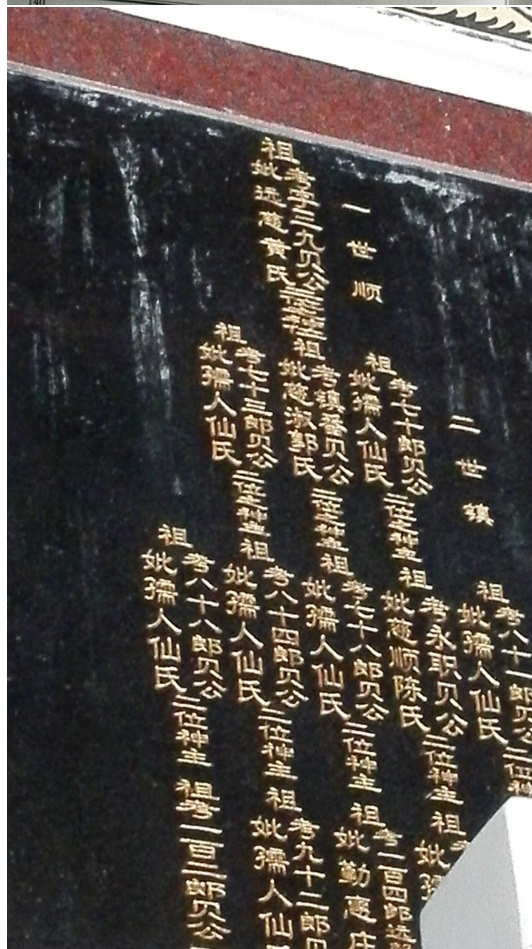 一世顺
祖
考字三九贝公
妣远慈黄氏
二位神主
二世镇
祖
考七十郎贝公
妣孺人仙氏
二位神主
祖
考镇番贝公
妣慈淑郭氏
二位神主
祖
考七十三郎贝公
妣孺人仙氏
二位神主
祖
考八十一郎贝公
妣孺人仙氏
二位神
祖
考永职贝公
妣慈顺陈氏
二位神主
祖
考七十八郎贝公
妣孺人仙氏
二位神主
祖
考八十四郎贝公
妣孺人仙氏
二位神主
祖
考八十八郎贝公
妣孺人仙氏
二位神主
祖
妣
祖
考一百四郎远
妣勤惠庄
祖
考九十二郎贝
妣孺人仙氏
祖考一百二郎贝公